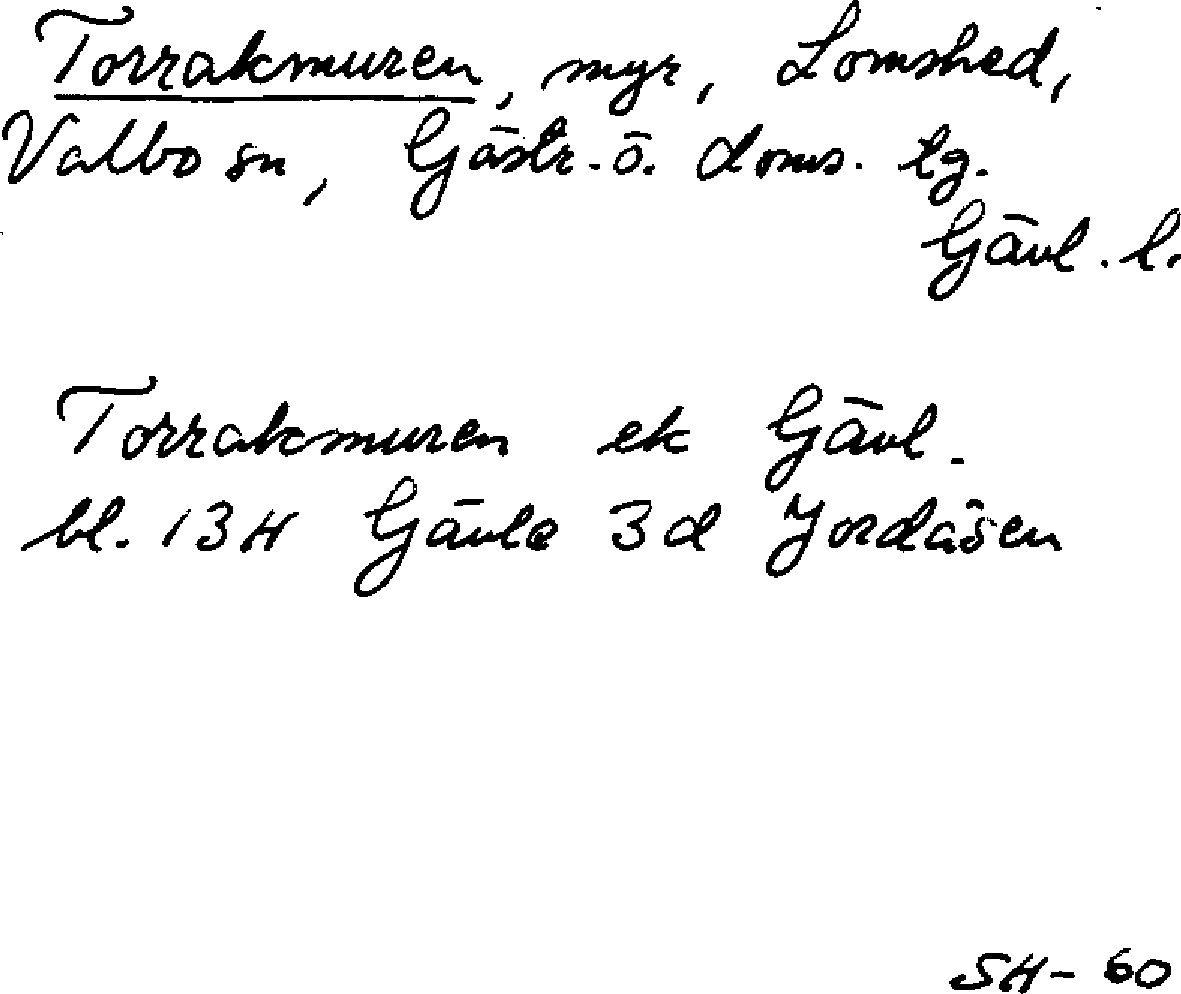 Torrakmuren, myr, Lomshed,
Valbo sn, Gästr.-ö. doms. tg.
Gävl. l.
Torrakmuren ek Gävl.
bl. 13H Gävle 3d Jordåsen
SH-60